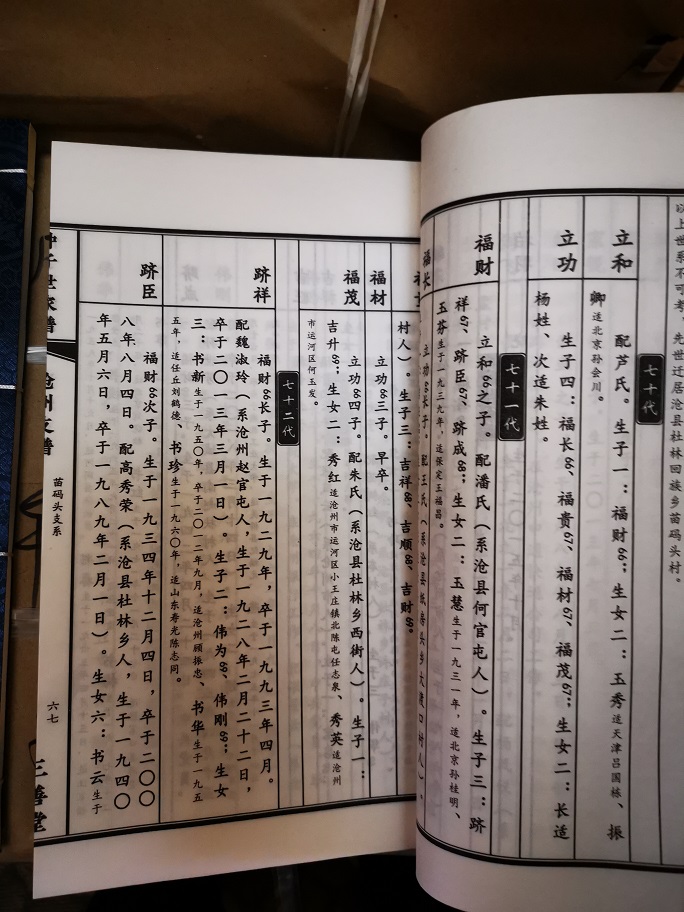 以上世系不可考,先世迁居沧县杜林回族乡苗码头村。
七十代
立和
配芦氏。生子一:福财66;生女二:玉秀适天津吕国栋、振
卿适北京孙会川。
立功
生子四:福长66、福贵67、福材67、福茂67;生女二:长适
杨姓、次适朱姓。
七十一代
福财
立和66之子。配潘氏(系沧县何官屯人)。生子三:跻
祥67、跻臣67、跻成68;生女二:玉慧生于一九三一年,适北京孙桂明、
玉芬生于一九三九年,适张定王福昌。
福长
立功66长子。配王氏(系沧县纸房头乡大渡口村人)。
村人)。生子三:吉祥68、吉顺68、吉财68。
福材
立功66三子。早卒。
福茂
立功66四子。配朱氏(系沧县杜林乡西街人)。生子一:
吉升68;生女二:秀红适沧州市运河区小王庄镇北陈屯任志泉、秀英适沧州
市运河区何玉发。
七十二代
跻祥
福财66长子。生于一九二九年,卒于一九九三年四月。
配魏淑玲(系沧州赵官屯人,生于一九二八年二月二十二日,
卒于二〇一三年三月一日)。生子二:伟为68、伟刚68;生女
三:书新生于一九五〇年,卒于二〇一二年九月,适沧州顾振忠、书华生于一九五
五年,适任丘刘鹤德、书珍生于一九六〇年,适山东寿光陈志同。
跻臣
福财66次子。生于一九三四年十二月四日,卒于二〇〇
八年八月四日。配高秀荣(系沧县杜林乡人,生于一九四〇
年五月六日,卒于一九八九年二月一日)。生女六:书云生于
世家谱
沧州支谱
苗码头支系
六七
三善堂